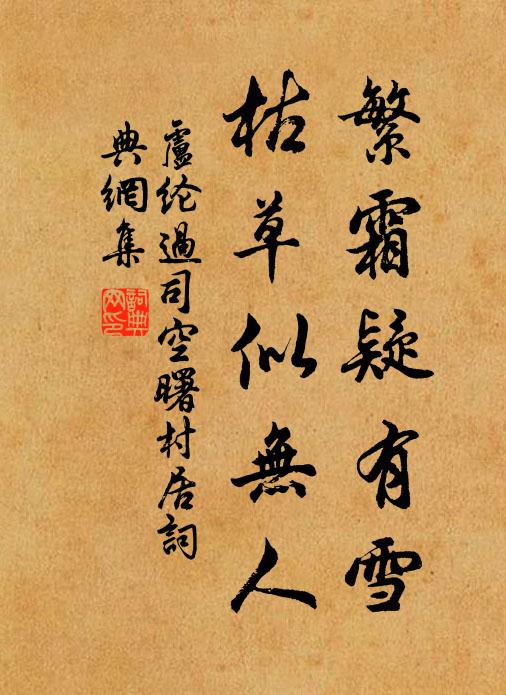 繁霜疑有雪
枯草似無人
盧纶過司空曙村居詞
典網集
詞典网印